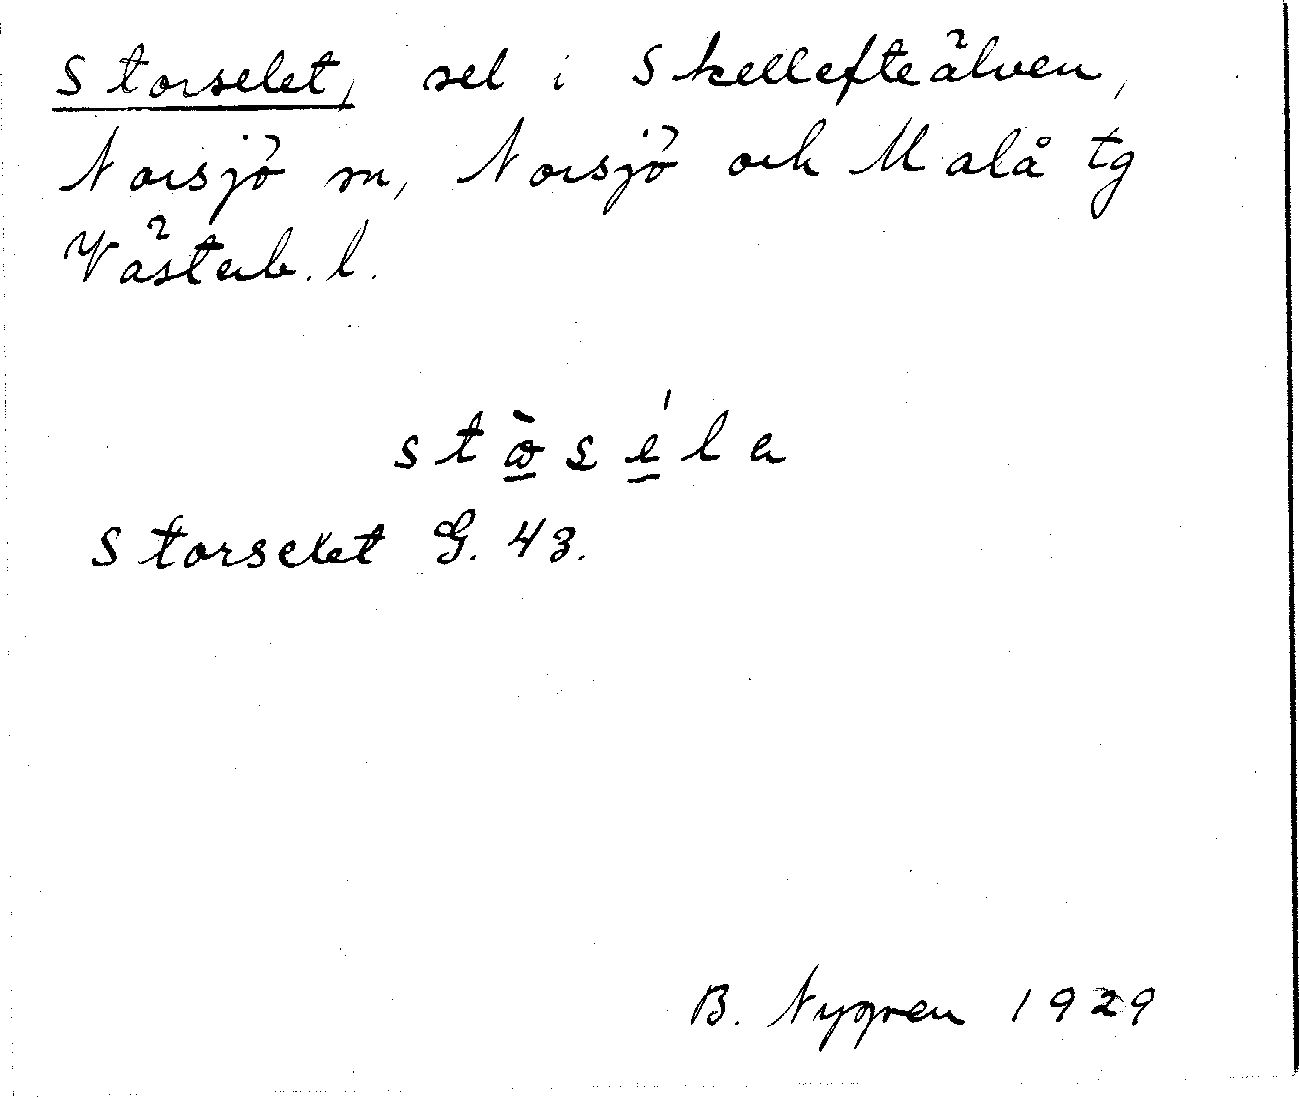 Storselet, sel i Skellefteälven,
Norsjö sn, Norsjö och Malå tg
Västerb. l.
Storselet G. 43.
B. Nygren 1929